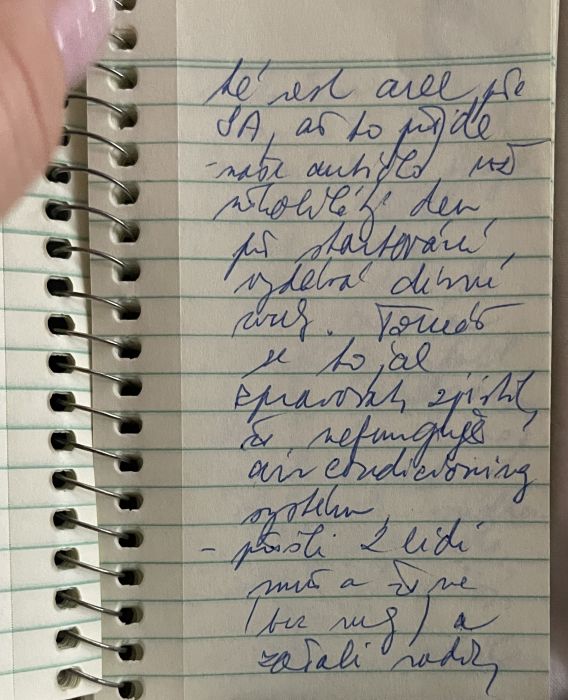 SA, až to přijde
- naše autíčko, už
několikátý den
při startování,
vydává divné
zvuky. Tomáš
se to jal
spravovat, zjistil,
že nefunguje
air conditioning
systém,
- přišli 2 lidi
muž a žena
(bez nohy) a
začali